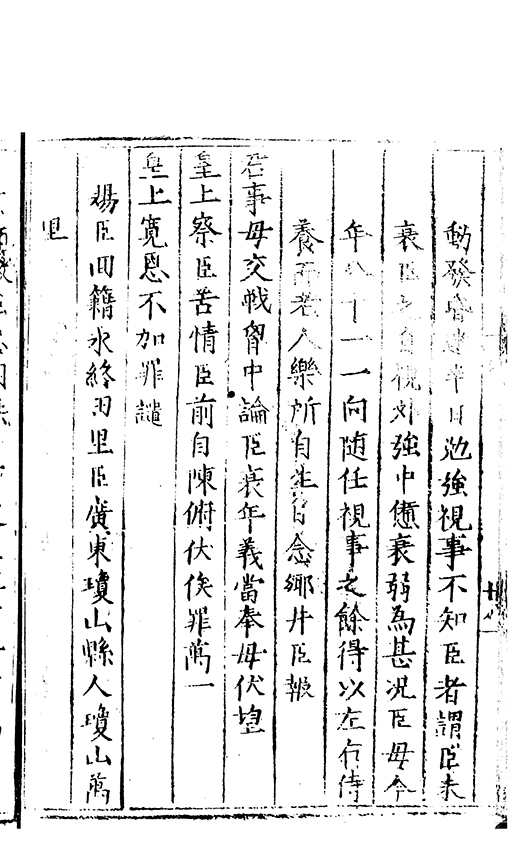 動發昏半日勉強視事不知臣者謂臣未
衰臣之自視外強中憊衰弱為甚况臣母今
年八十一一向隨任視事之餘得以左右侍
養而老人樂所自生日念鄉井臣報
君事母交戰胷中論臣衰年義當奉母伏望
皇上察臣苦情臣前自陳俯伏俟罪萬一
皇上寬恩不加罪譴
賜臣回籍永終田里臣廣東瓊山縣人瓊山萬
里